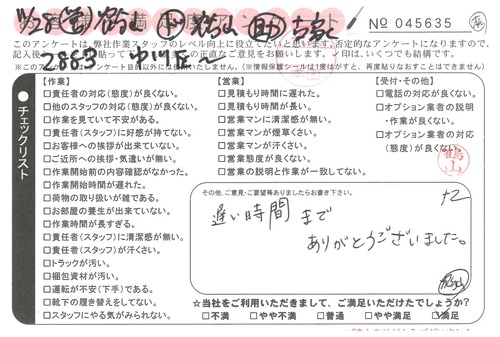 11/28
No 045635
このアンケートは、弊社作業スタッフのレベル向上に役立てたいと思います。否定的なアンケートになりますので、
2883 中川
【作業】
□責任者の対応(態度)が良くない。
□他のスタッフの対応(態度)が良くない。
□作業を見ていて不安がある。
□責任者(スタッフ)に好感が持てない。
□お客様への挨拶が出来ていない。
□ご近所への挨拶・気遣いが無い。
□作業開始前の内容確認がなかった。
□作業開始時間が遅れた。
□荷物の取り扱いが雑である。
□お部屋の養生が出来ていない。
□作業時間が長すぎる。
□責任者(スタッフ)に清潔感が無い。
□責任者(スタッフ)が汗くさい。
□トラックが汚い。
□梱包資材が汚い。
□運転が不安(下手)である。
□靴下の履き替えをしてない。
□スタッフにやる気がみられない。
チェックリスト
【営業】
□見積もり時間に遅れた。
□見積もり時間が長い。
□営業マンに清潔感が無い。
□営業マンが煙草くさい。
□営業マンが汗くさい。
□営業態度が良くない。
□営業の説明と作業が一致してない。
【受付・その他】
□電話の対応が良くない。
□オプション業者の説明
・作業が良くない。
□オプション業者の対応
(態度)が良くない。
鶴山
その他、ご意見・ご要望等ありましたらお書き下さい。
+2
遅い時間まで
ありがとうございました。
☆当社をご利用いただきまして、ご満足いただけたでしょうか?
□不満 □やや不満 □普通 □やや満足 ☑満足